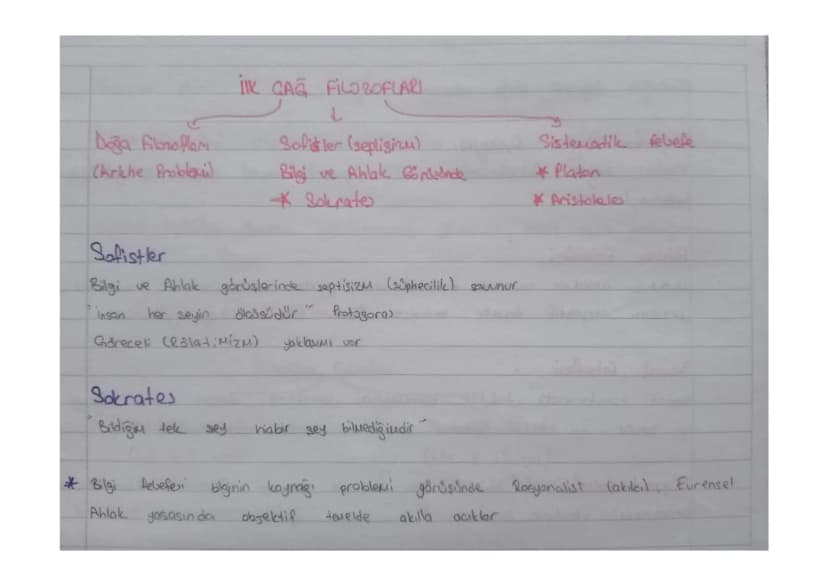 İLK ÇAĞ FİLOZOFLARI
Doğa Filozofları Sofistler (septisizm) Sistematik felsefe
(Arkhe Problemi) Bilgi ve Ahlak Görüşünde * Platon
* Sokrates * Aristoteles
Sofistler
Bilgi ve Ahlak görüşlerinde septisizm (şüphecilik) savunur
"insan her şeyin ölçüsüdür" Protagoras
Göreceli (Rölativizm) yaklaşımı var
Sokrates
"Bildiğim tek şey hiçbir şey bilmediğimdir"
* Bilgi felsefesi bilginin kaynağı problemi görüşünde Rasyonalist (akılcı). Evrensel
Ahlak yasasında objektif temelde akılla açıklar